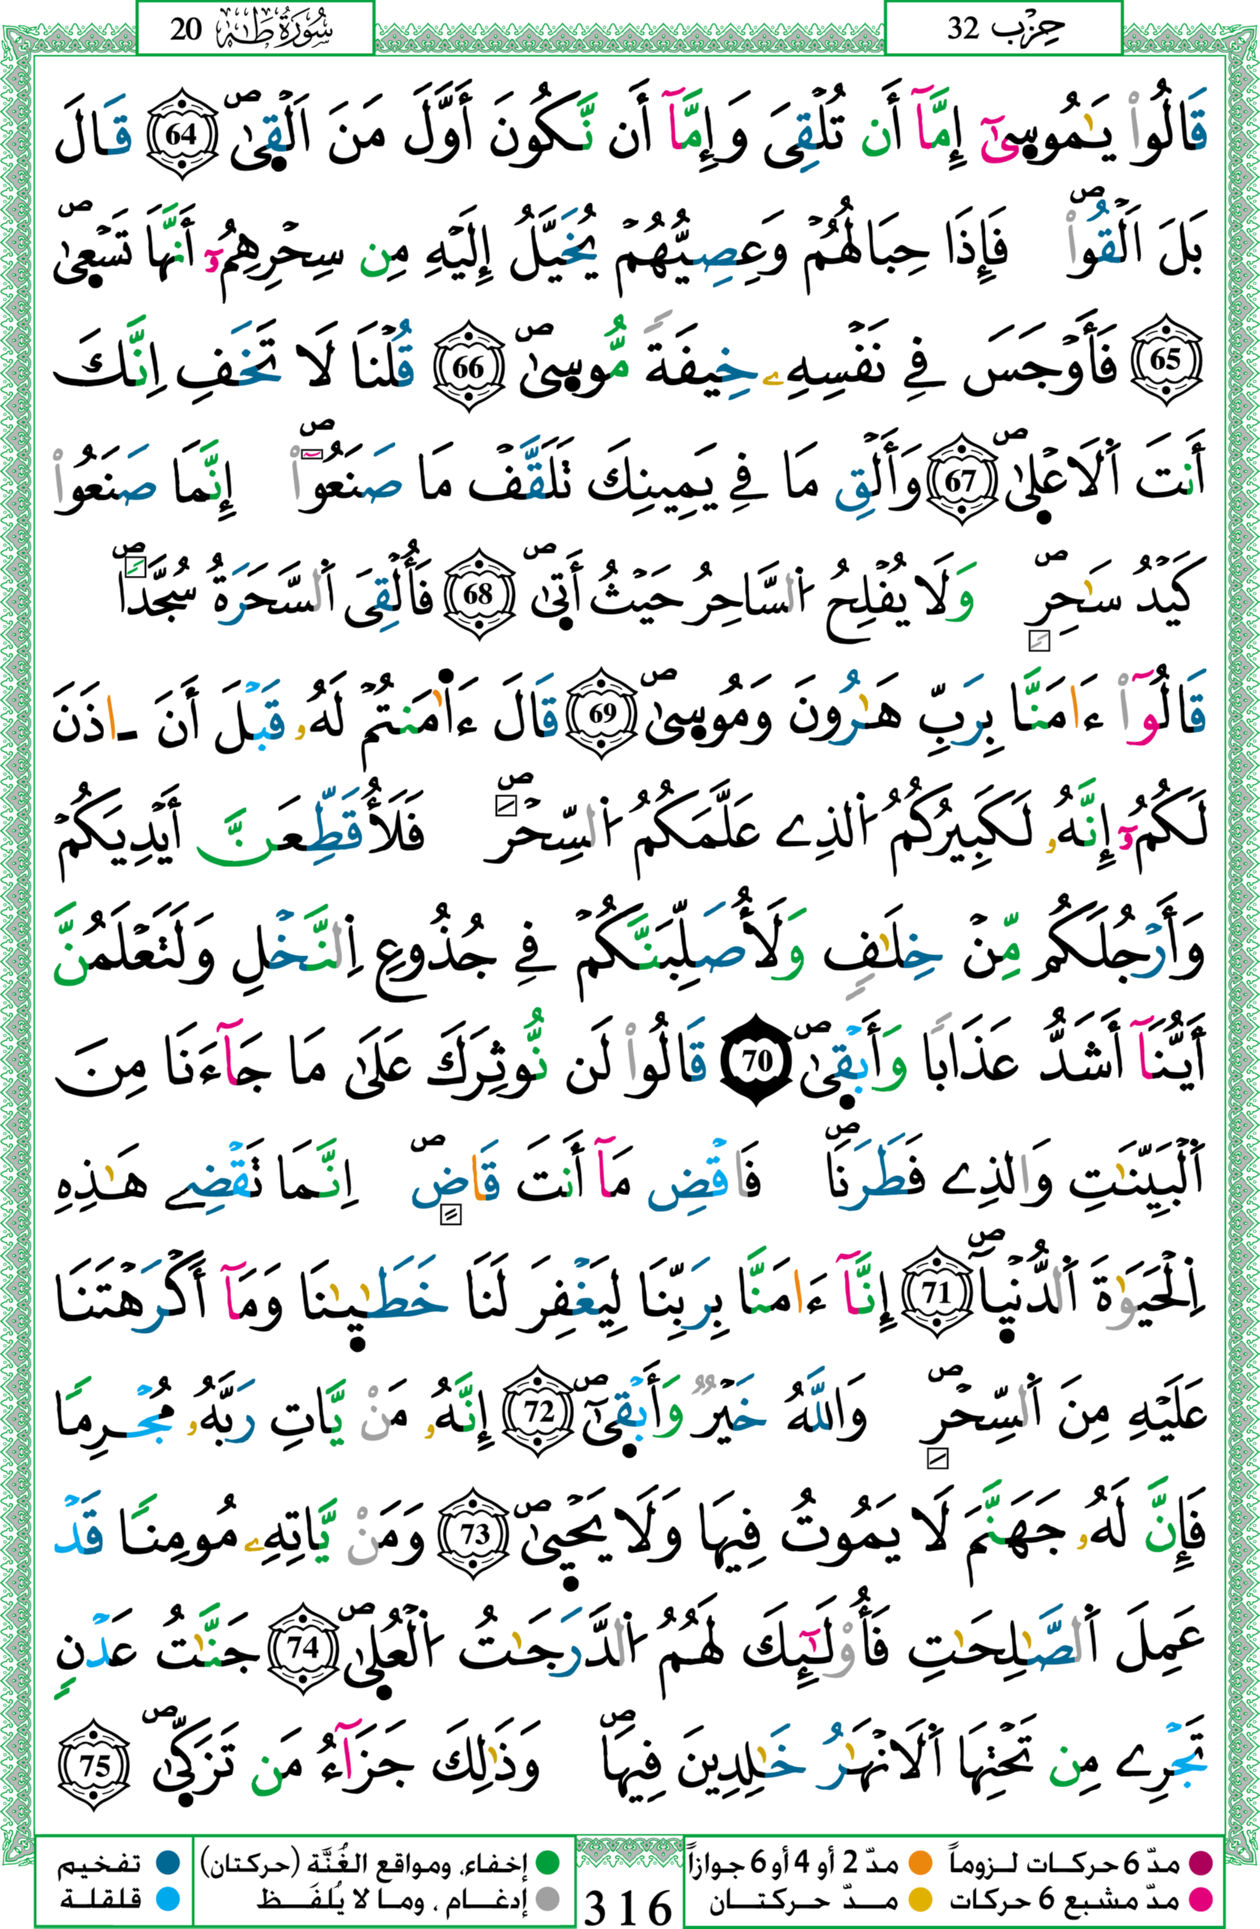 سُورَةُ طَهَ 20
حِزْب 32
قَالُواْ يَٰمُوسَىٰٓ إِمَّآ أَن تُلْقِىَ وَإِمَّآ أَن نَّكُونَ أَوَّلَ مَنَ اَلْقَىٰۖ 64 قَالَ
بَلَ اَلْقُواْۖ فَإِذَا حِبَالُهُمْ وَعِصِيُّهُمْ يُخَيَّلُ إِلَيْهِ مِن سِحْرِهِمُۥٓ أَنَّهَا تَسْعَىٰۖ
65 فَأَوْجَسَ فِے نَفْسِهِۦ خِيفَةً مُّوسَىٰۖ 66 قُلْنَا لَا تَخَفِ اِنَّكَ
أَنتَ اَلَاعْلَىٰۖ 67 وَأَلْقِ مَا فِے يَمِينِكَ تَلَقَّفْ مَا صَنَعُواْۖ إِنَّمَا صَنَعُواْ
كَيْدُ سَٰحِرٖۖ وَلَا يُفْلِحُ اُلسَّاحِرُ حَيْثُ أَتَىٰۖ 68 فَأُلْقِىَ اَلسَّحَرَةُ سُجَّداٗۖ
قَالُوٓاْ ءَامَنَّا بِرَبِّ هَٰرُونَ وَمُوسَىٰۖ 69 قَالَ ءَا۬مَنتُمْ لَهُۥ قَبْلَ أَنَ اٰذَنَ
لَكُمُۥٓ إِنَّهُۥ لَكَبِيرُكُمُ اُلذِے عَلَّمَكُمُ اُلسِّحْرَۖ فَلَأُقَطِّعَنَّ أَيْدِيَكُمْ
وَأَرْجُلَكُم مِّنْ خِلَٰفٖ وَلَأُصَلِّبَنَّكُمْ فِے جُذُوعِ اِلنَّخْلِ وَلَتَعْلَمُنَّ
أَيُّنَآ أَشَدُّ عَذَابًا وَأَبْقَىٰۖ 70 قَالُواْ لَن نُّوثِرَكَ عَلَىٰ مَا جَآءَنَا مِنَ
اَلْبَيِّنَٰتِ وَالذِے فَطَرَنَاۖ فَاقْضِ مَآ أَنتَ قَاضٍۖ اِنَّمَا تَقْضِے هَٰذِهِ
اِلْحَيَوٰةَ اَلدُّنْيَآۖ 71 إِنَّآ ءَامَنَّا بِرَبِّنَا لِيَغْفِرَ لَنَا خَطَٰيَٰنَا وَمَآ أَكْرَهْتَنَا
عَلَيْهِ مِنَ اَلسِّحْرِۖ وَاللَّهُ خَيْرٌ وَأَبْقَىٰٓۖ 72 إِنَّهُۥ مَنْ يَّاتِ رَبَّهُۥ مُجْرِمًا
فَإِنَّ لَهُۥ جَهَنَّمَ لَا يَمُوتُ فِيهَا وَلَا يَحْيَىٰۖ 73 وَمَنْ يَّاتِهِۦ مُومِنًا قَدْ
عَمِلَ اَلصَّٰلِحَٰتِ فَأُوْلَٰٓئِكَ لَهُمُ اُلدَّرَجَٰتُ اُلْعُلَىٰۖ 74 جَنَّٰتُ عَدْنٍ
تَجْرِے مِن تَحْتِهَا اَلَانْهَٰرُ خَٰلِدِينَ فِيهَاۖ وَذَٰلِكَ جَزَآءُ مَن تَزَكَّىٰۖ 75
مدّ 6 حركات لـزوماً مدّ 2 أو 4 أو 6 جوازاً
مدّ مشبع 6 حركات مــدّ حـركتــان
316
إخفاء، ومواقع الغُنَّة (حركتان) تفخيم
إدغــام ، ومـا لا يُلفَــظ قلقلة